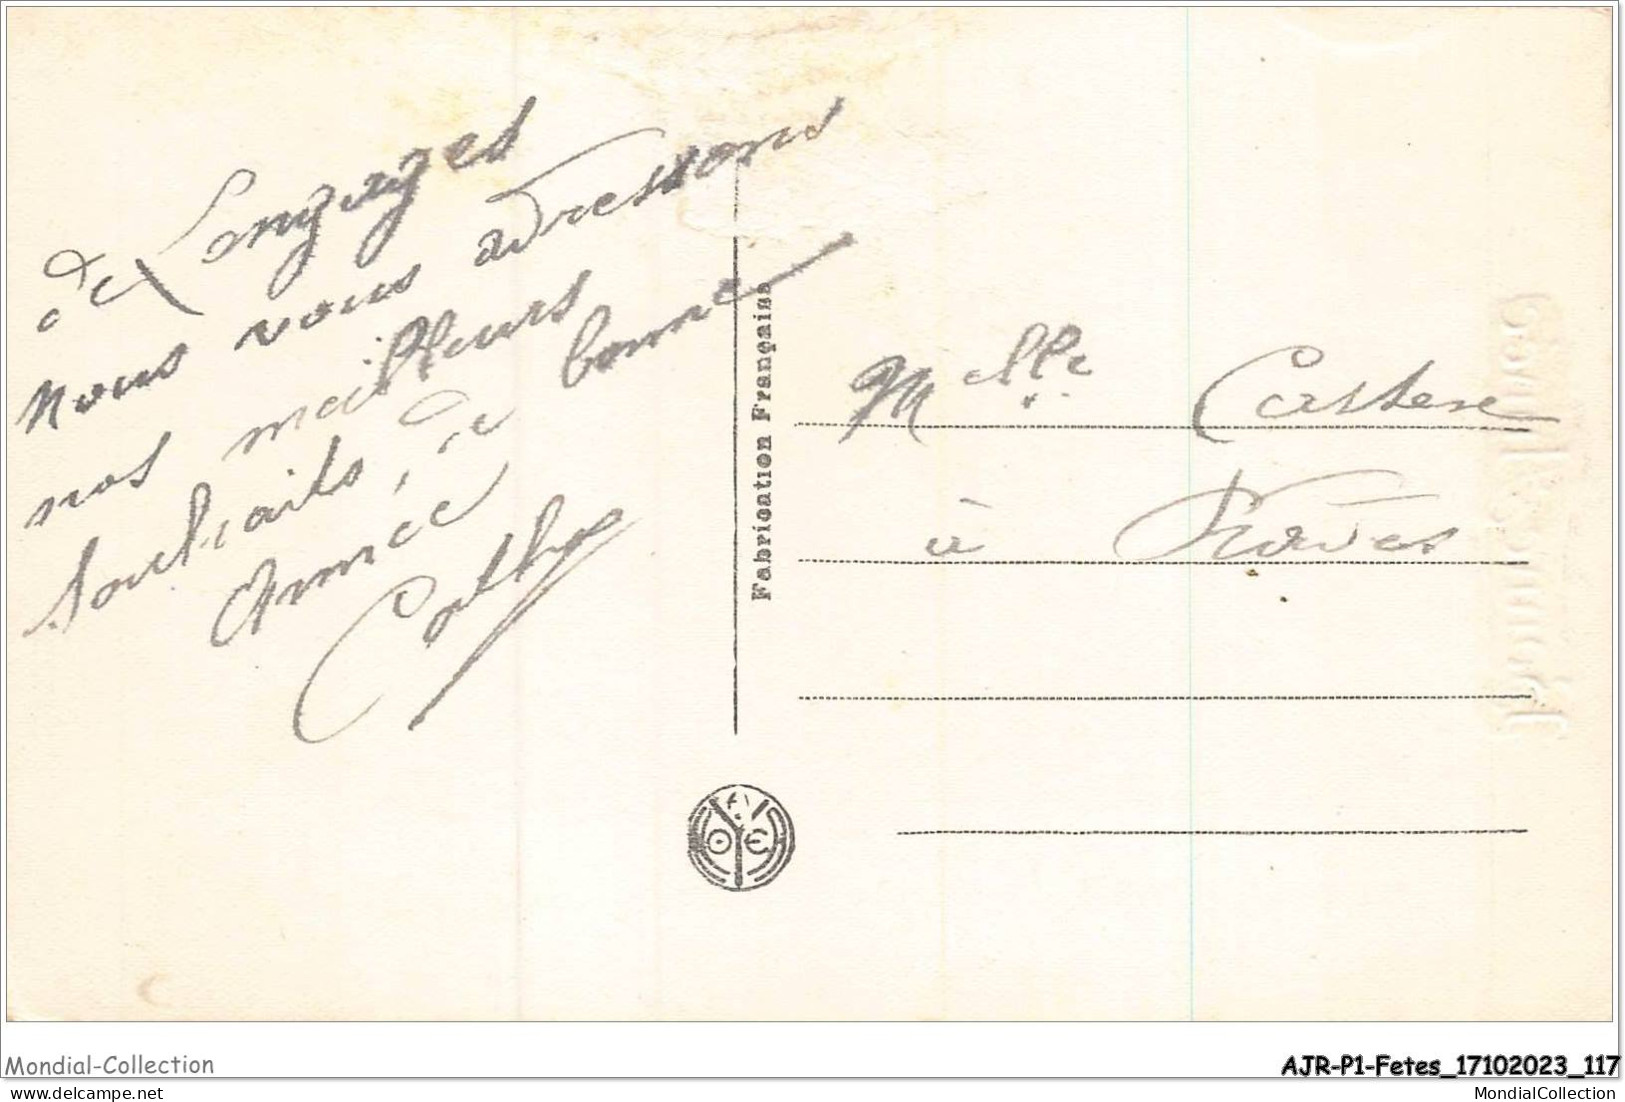 de Longages
nous vous adressons
nos meilleurs
Souhaits, de bonne
Année
Fabrication Française
Melle Castex
à
Mondial-Collection
AJR-P1-Fetes_17102023_117
MondialCollection